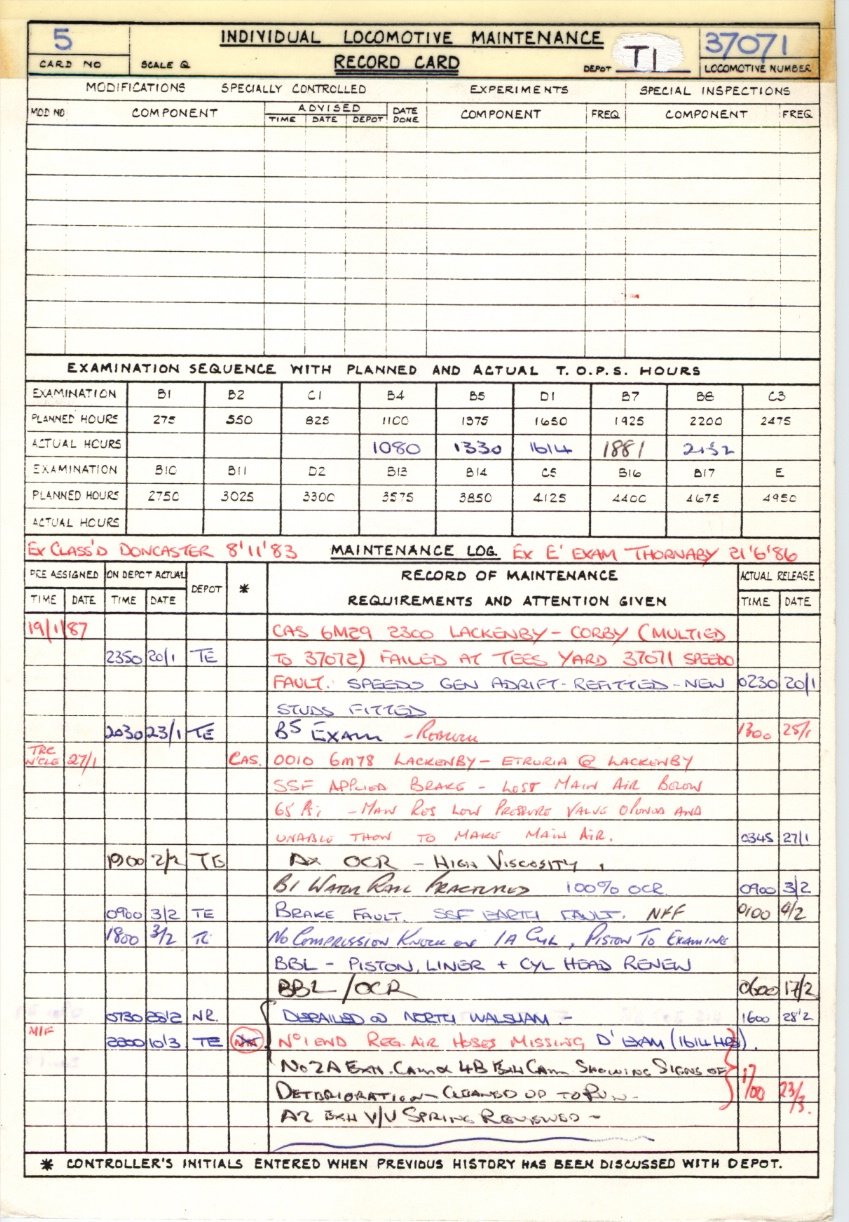 5 INDIVIDUAL LOCOMOTIVE MAINTENANCE 37071
CARD NO SCALE Q RECORD CARD DEPOT TI LOCOMOTIVE NUMBER
MODIFICATIONS SPECIALLY CONTROLLED EXPERIMENTS SPECIAL INSPECTIONS
MOD NO COMPONENT ADVISED DATE DONE COMPONENT FREQ COMPONENT FREQ
TIME DATE DEPOT
EXAMINATION SEQUENCE WITH PLANNED AND ACTUAL T.O.P.S. HOURS
EXAMINATION B1 B2 C1 B4 B5 D1 B7 B8 C3
PLANNED HOURS 275 550 825 1100 1375 1650 1925 2200 2475
ACTUAL HOURS 1080 1330 1614 1881 2132
EXAMINATION B10 B11 D2 B13 B14 C5 B16 B17 E
PLANNED HOURS 2750 3025 3300 3575 3850 4125 4400 4675 4950
ACTUAL HOURS
EX CLASS'D DONCASTER 8'11'83 MAINTENANCE LOG. EX E' EXAM THORNABY 21'6'86
PRE ASSIGNED ON DEPOT ACTUAL DEPOT * RECORD OF MAINTENANCE ACTUAL RELEASE
TIME DATE TIME DATE REQUIREMENTS AND ATTENTION GIVEN TIME DATE
19/1/87 CAS 6M29 2300 LACKENBY - CORBY (MULTIED
2350 20/1 TE TO 37072) FAILED AT TEES YARD 37071 SPEEDO
FAULT. SPEEDO GEN ADRIFT - REFITTED - NEW 0230 20/1
STUDS FITTED
2030 23/1 TE B5 EXAM - 1300 25/1
27/1 CAS. 0010 6M78 LACKENBY - ETRURIA @ LACKENBY
SSF APPLIED BRAKE - LOST MAIN AIR BELOW
65 PSI - MAIN RES LOW PRESSURE VALVE OPENED AND
UNABLE THEN TO MAKE MAIN AIR. 0345 27/1
1900 2/2 TE AX OCR - HIGH VISCOSITY.
B1 WATER RAIL FRACTURED 100% OCR 0900 3/2
0900 3/2 TE BRAKE FAULT. SSF EARTH FAULT. NFF 0100 4/2
1800 3/2 TE NO COMPRESSION KNOCK ON 1A CYL, PISTON TO EXAMINE
BBL - PISTON, LINER + CYL HEAD RENEW
BBL / OCR 0600 17/2
0730 28/2 NR DERAILED @ NORTH WALSHAM - 1600 28'2
M/F 2200 10/3 TE No 1 END REG. AIR HOSES MISSING D' EXAM (1614 HRS).
No 2A EXH. CAM & 4B EXH CAM SHOWING SIGNS OF 1700 23/3.
DETERIORATION - CLEANED UP TO RUN -
A2 EXH V/V SPRING RENEWED -
* CONTROLLER'S INITIALS ENTERED WHEN PREVIOUS HISTORY HAS BEEN DISCUSSED WITH DEPOT.